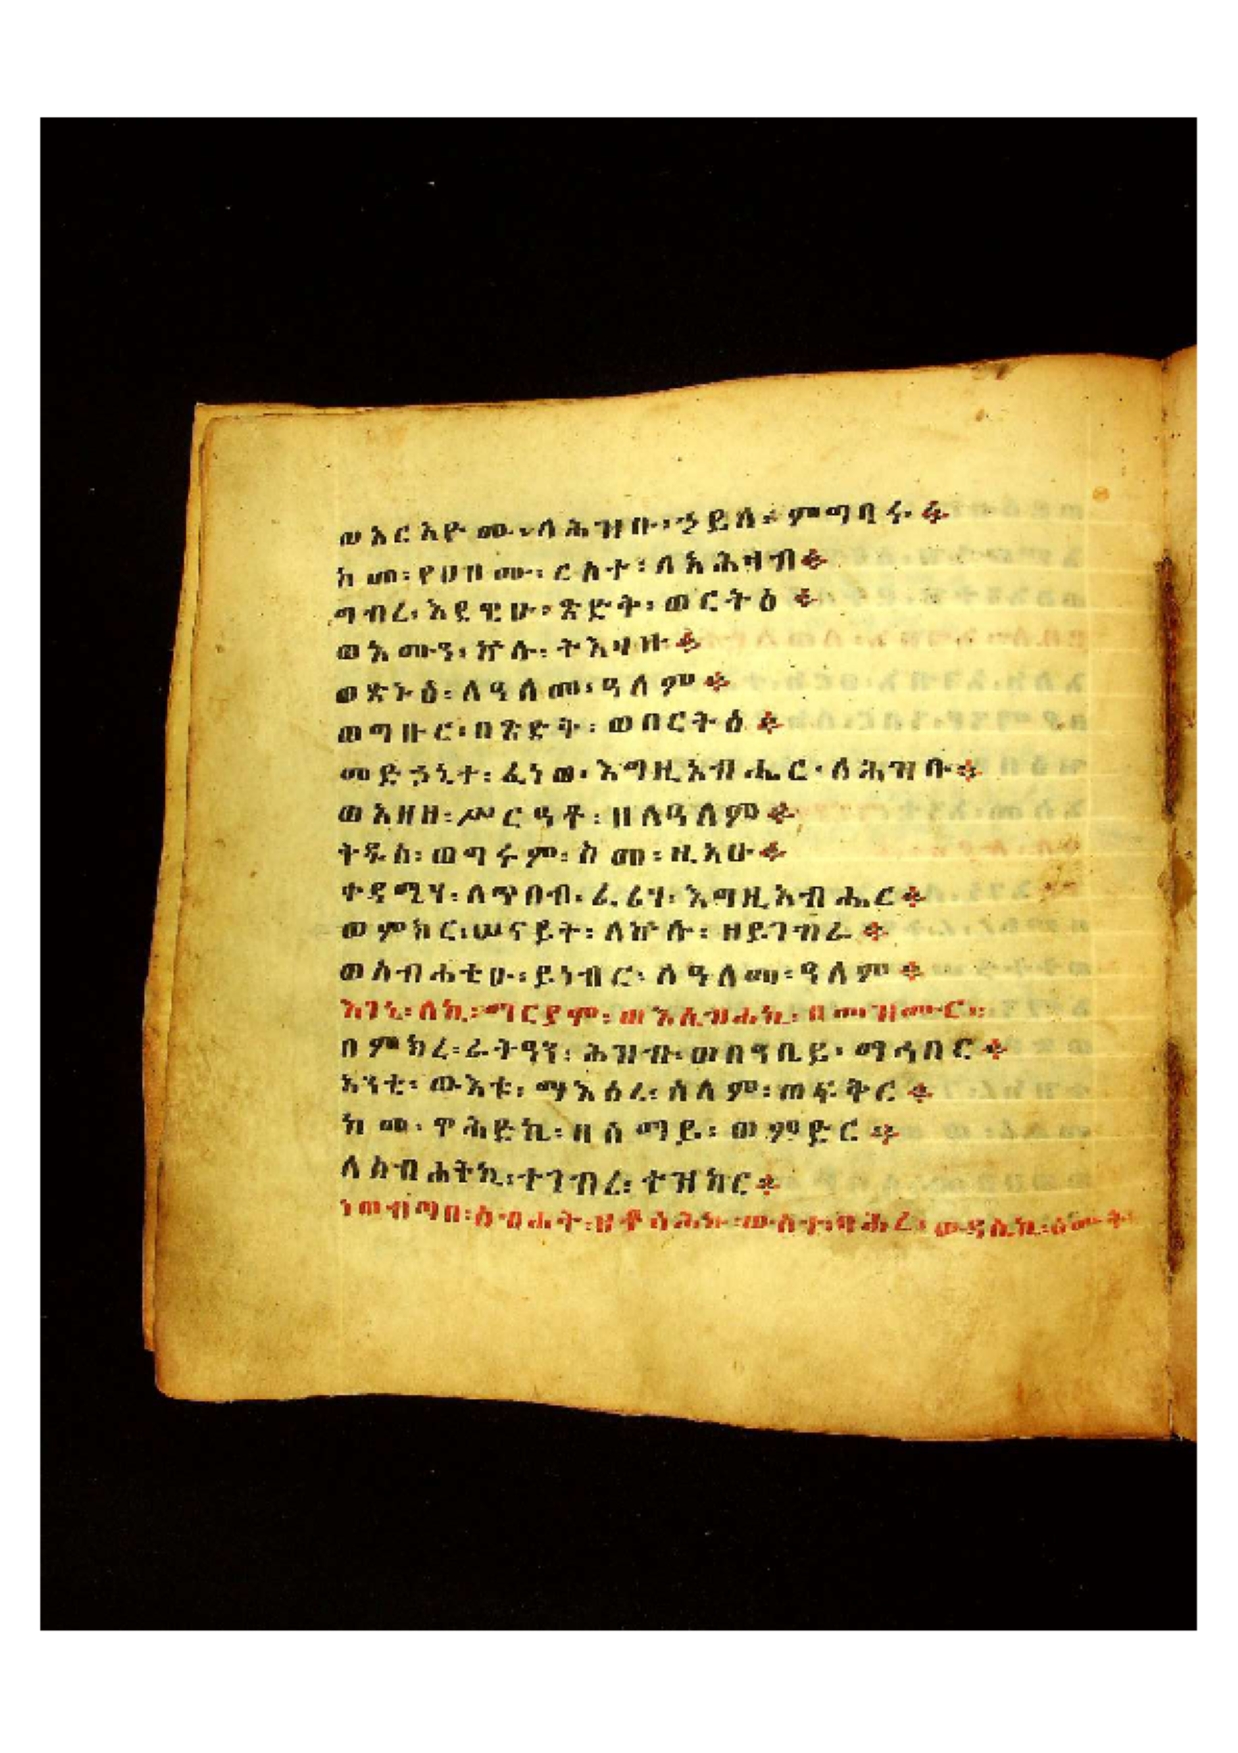 ወአርአዮሙ፡ለሕዝቡ፡ኃይለ፡ምግባሩ፨
ከመ፡የሀቦሙ፡ርስተ፡ለአሕዛብ፨
ግብረ፡እደዊሁ፡ጽድቅ፡ወርትዕ፨
ወእሙን፡ኵሉ፡ትእዛዙ፨
ወጽኑዕ፡ለዓለመ፡ዓለም፨
ወግቡር፡በጽድቅ፡ወበርትዕ፨
መድኃኒተ፡ፈነወ፡እግዚአብሔር፡ለሕዝቡ፨
ወአዘዘ፡ሥርዓቶ፡ዘለዓለም፨
ቅዱስ፡ወግሩም፡ስመ፡ዚአሁ፨
ቀዳሚሃ፡ለጥበብ፡ፈሪሃ፡እግዚአብሔር፨
ወምክር፡ሠናይት፡ለኵሉ፡ዘይገብራ፨
ወስብሐቲሁ፡ይነብር፡ለዓለመ፡ዓለም፨
እገኒ፡ለኪ፡ማርያም፡ወእሴብሐኪ፡በመዝሙር፡፡
በምክረ፡ራትዓን፡ሕዝብ፡ወበዓቢይ፡ማኅበር፨
አንቲ፡ውእቱ፡ማእሰረ፡ሰላም፡ወፍቅር፨
ከመ፡ዋሕድኪ፡ዘሰማይ፡ወምድር፨
ለስብሐትኪ፡ተገብረ፡ተዝካር፨